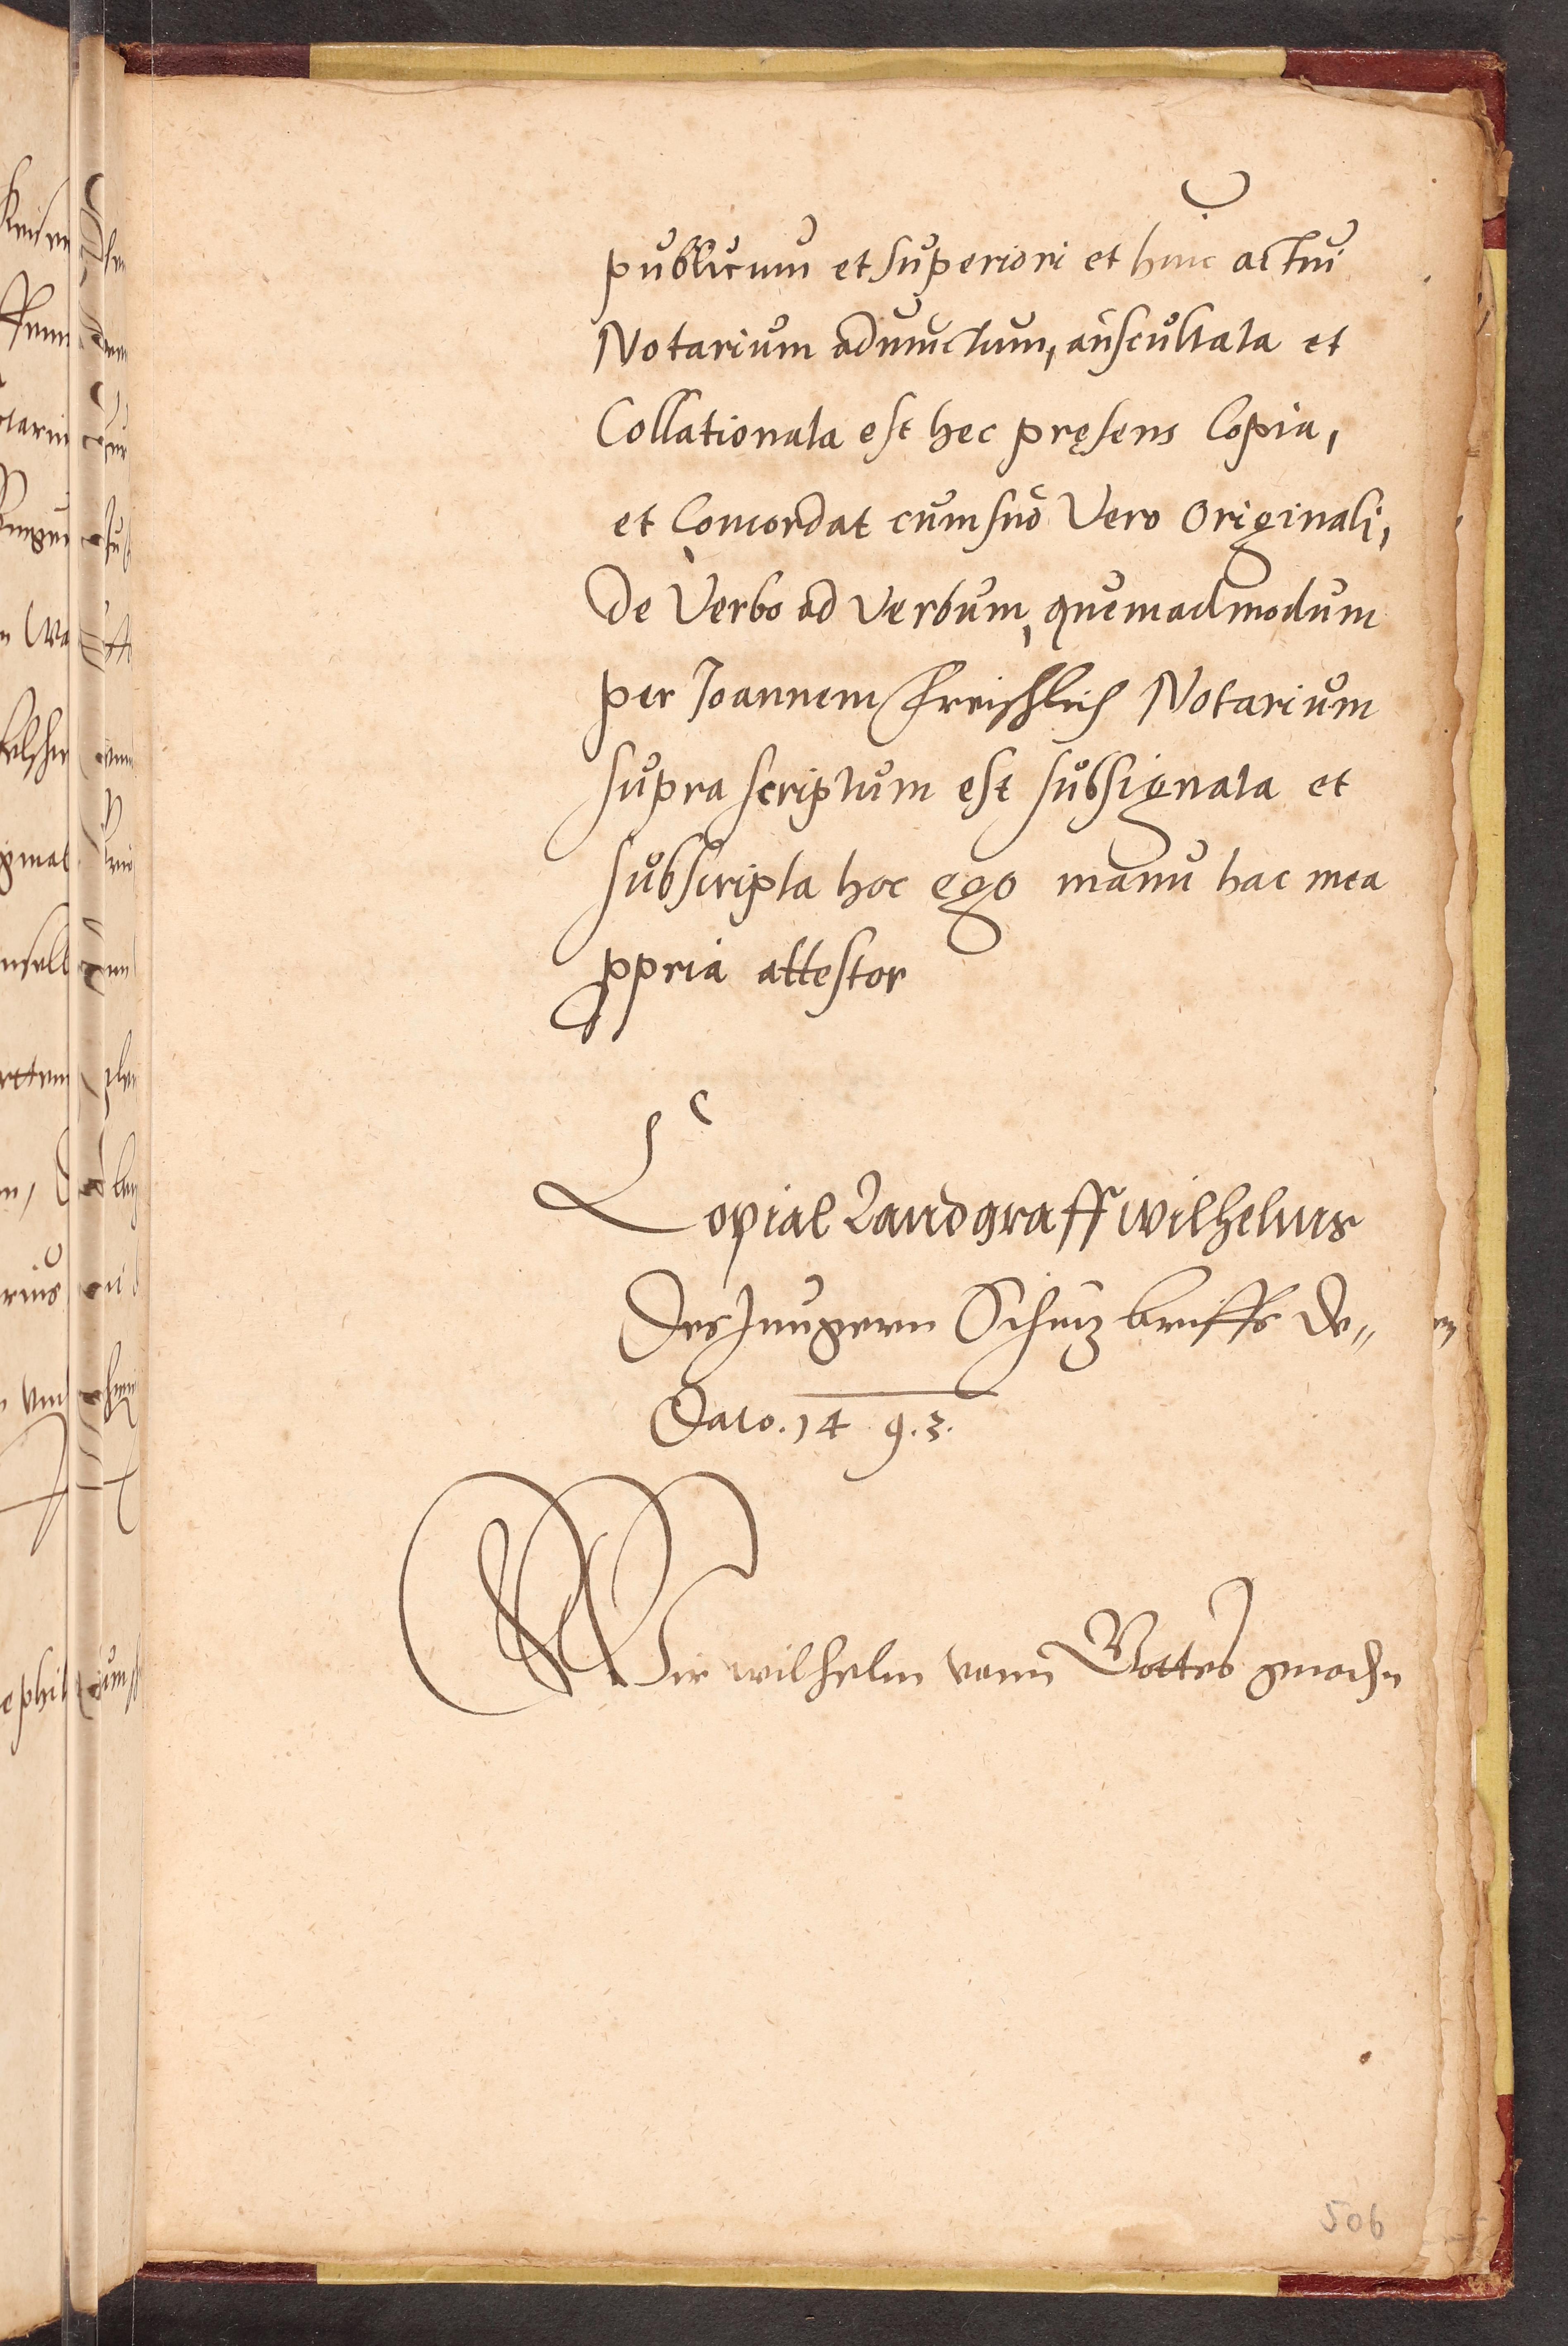 publicum et superiori et huic actui
Notarium adiunctum, auscultata et
Collationata est hec pręsens Copia,
et Concordat cum suo Vero Originali,
De Verbo ad Verbum, quemadmodum
per Joannem Notarium
supra scriptum est subsignata et
subscripta hoc ego manu hac mea
ppria attestor
Copial Landgraff wilhelms
des Jungern Schutz brieffs de„
Dato. 14 9.3.
Wir wilhelm vonn Gottes gnaden
506